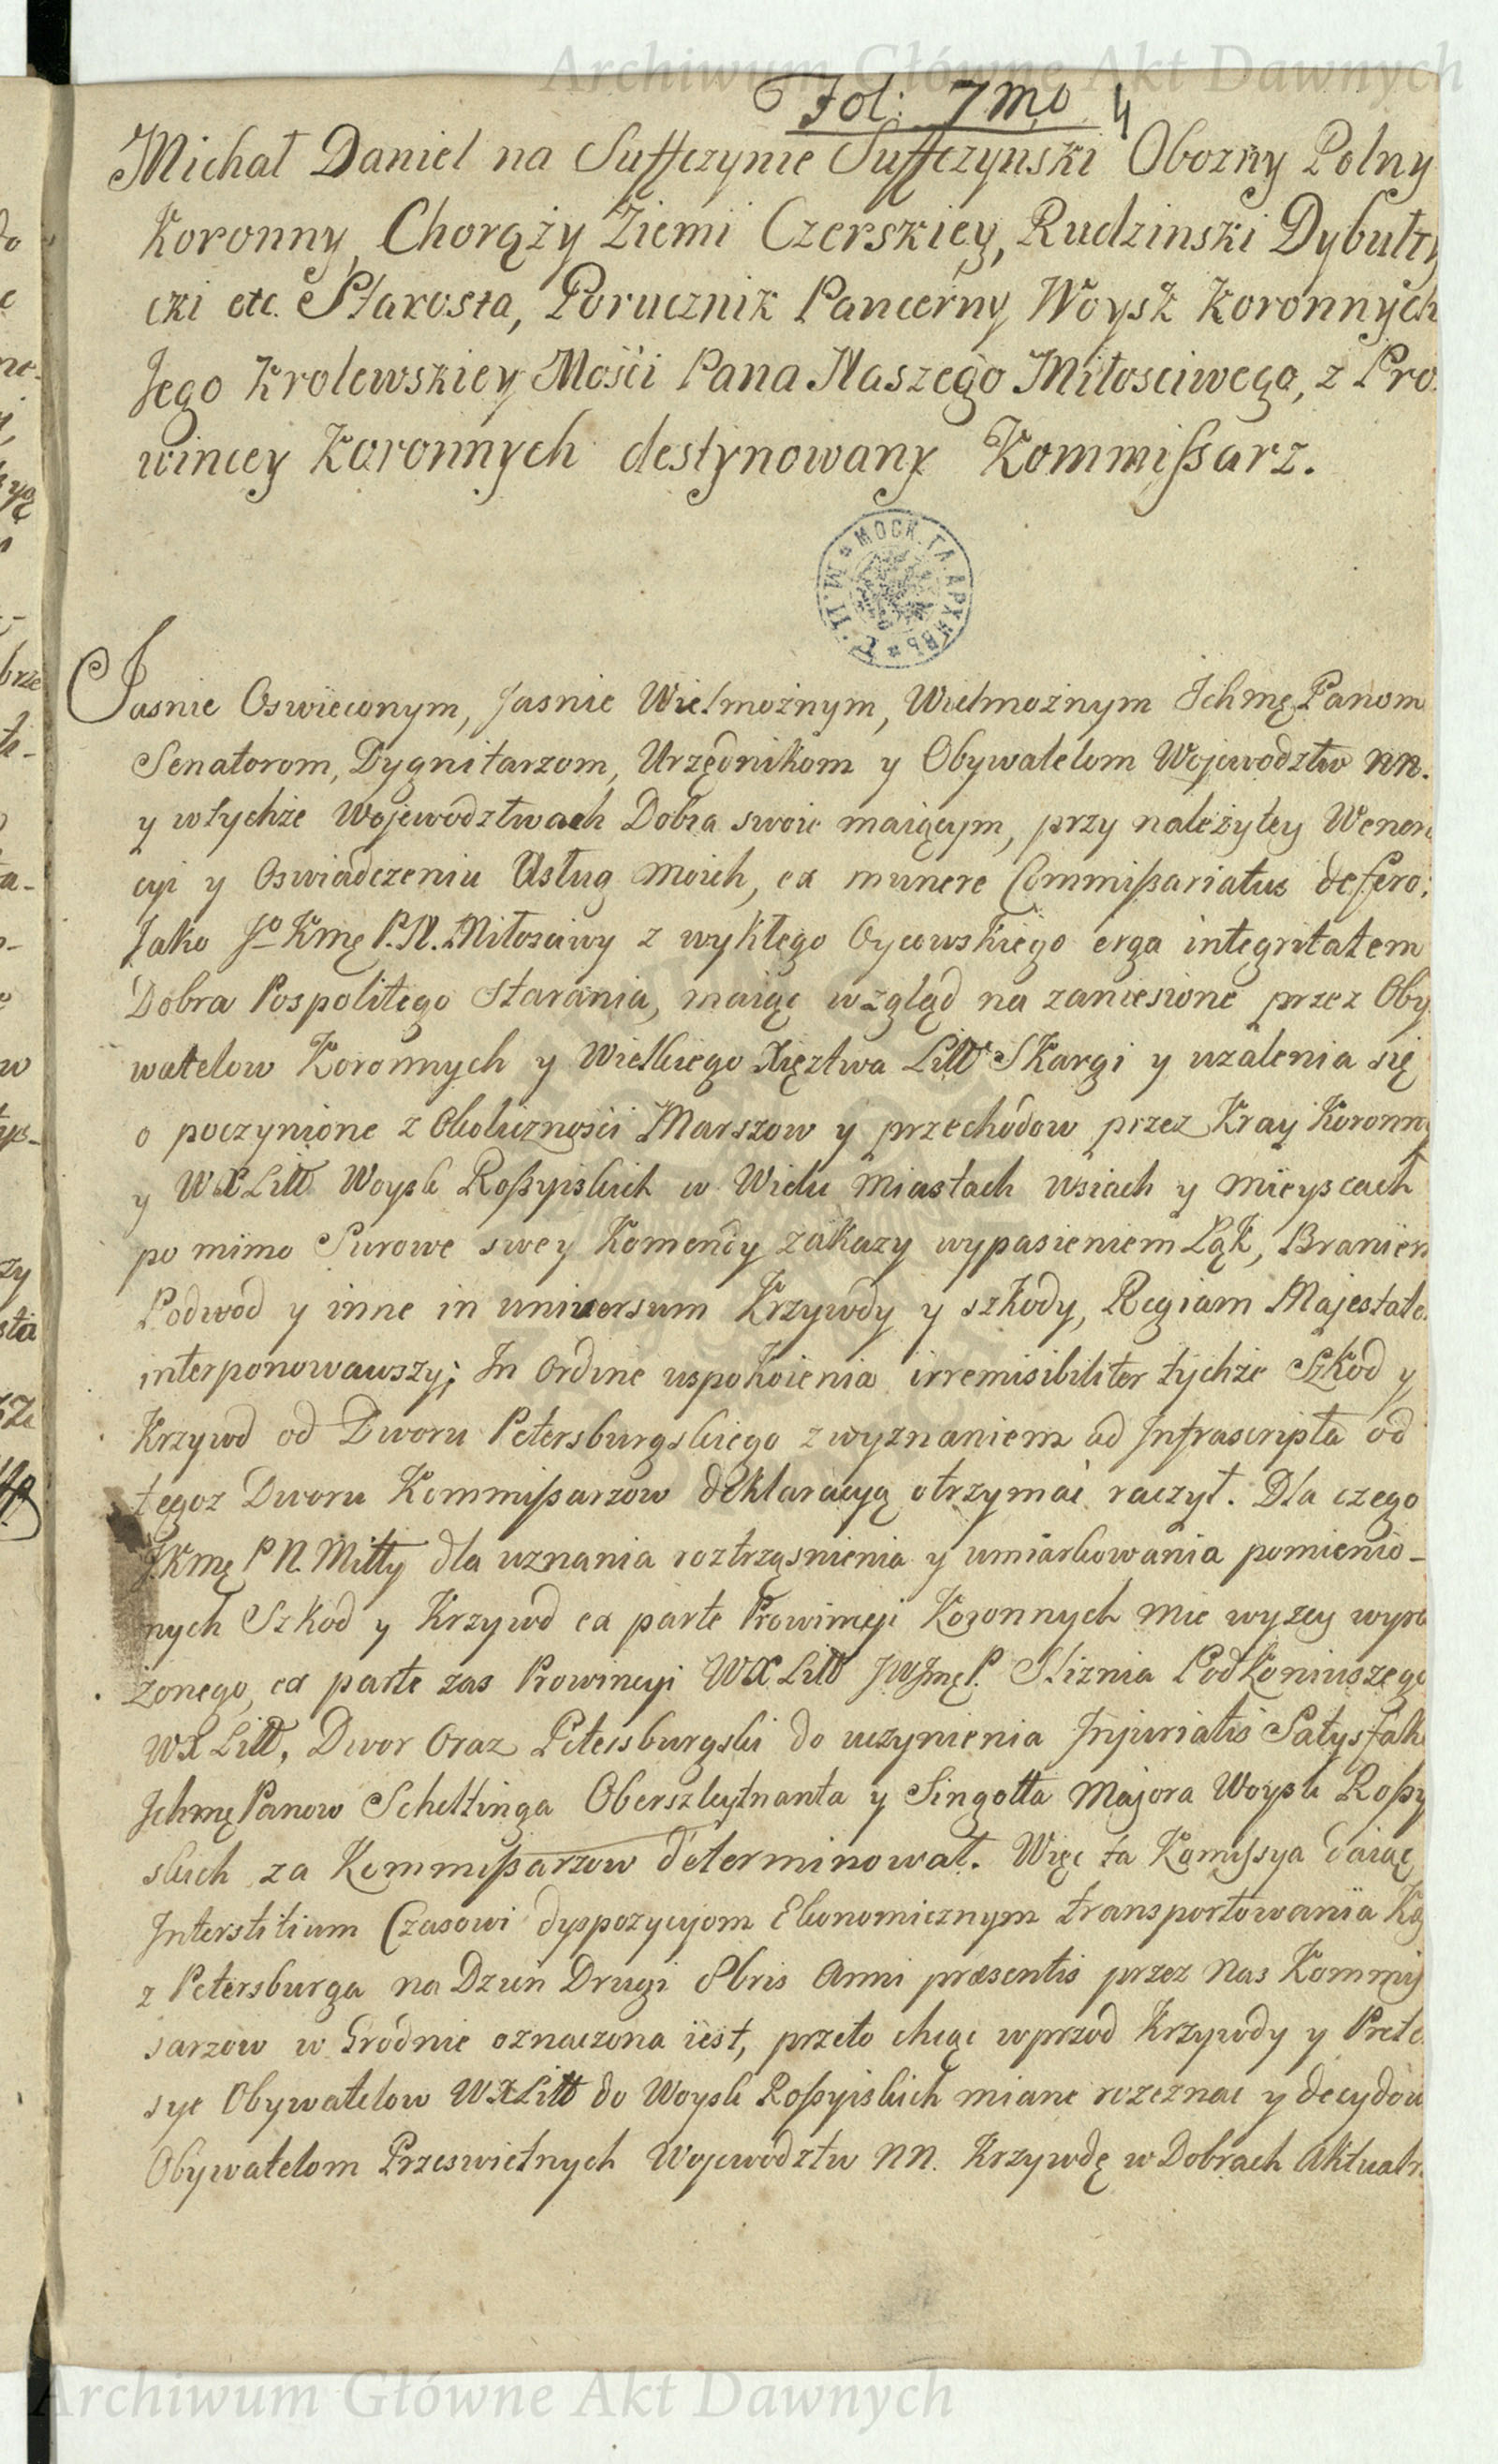 Archiwum Główne Akt Dawnych
Fol: 7mo 4
Michał Daniel na Suffczynie Suffczynski Obozny Polny
Koronny, Chorąży Ziemi Czerskiey, Rudzinski Dybułty
cki etc. Starosta, Porucznik Pancerny Woysk Koronnych
Jego Krolewskiey Mości Pana Naszego Miłosciwego, z Pro
wincey Koronnych destynowany Kommißarz.
МОСК. ГЛ. АРХИВЪ М. И. Д.
Jasnie Oswieconym, Jasnie Wielmożnym, Wielmożnym Ichmę Panom
Senatorom, Dygnitarzom, Urzędnikom y Obywatelom Wojewodztw NN.
y wtychże Wojewodztwach Dobra swoie maiącym, przy należytey Wener
cyi y Oswiadczeniu Usług moich, ex munere Commißariatus defero;
Jako Jo Kmę P. N. Miłosciwy z wykłego Oycowskiego erga integritatem
Dobra Pospolitego Starania, maiąc wzgląd na zaniesione przez Oby
watelow Koronnych y Wielkiego Xięztwa Litt Skargi y uzalenia się
o poczynione z Okoliczności Marszow y przechodow przez Kray Koronny
y WXLitt Woysk Roßyiskich w Wielu Miastach wsiach y mieyscach
po mimo Surowe swey Komendy zakazy wypasieniem Łąk, Braniem
Podwod y inne in universum Krzywdy y szkody, Regiam Majestate
interponowawszy; In Ordine uspokoienia irremisibiliter tychże Szkod y
Krzywd od Dworu Petersburgskiego z wyznaniem ad Infrascripta od
tegoz Dworu Kommißarzow deklaracyą otrzymać raczył. Dla czego
JKmę P N. Miłty dla uznania roztrząsnienia y umiarkowania pomienio-
nych Szkod y Krzywd ex parte Prowincyi Koronnych mie wyzey wyra
żonego, ex parte zas Prowincyi WXLitt JWJmę P. Sliznia Podkoniuszego
WX Litt, Dwor Oraz Petersburgski do uczynienia Injuriatis Satysfak
Ichmę Panow Scheltinga Oberszleytnanta y Singotta Majora Woysk Roßy
skich za Kommißarzow determinował. Więc ta Komißya daiąc
Interstitium Czasowi dyspozycyom Ekonomicznym transportowania Ka
z Petersburga na Dzień Drugi 8bris Anni præsentis przez Nas Kommiß
sarzow w Grodnie oznaczona iest, przeto chcąc wprzod Krzywdy y Prete
sye Obywatelow WXLitt do Woysk Roßyiskich miane rozeznac y decydow
Obywatelom Przeswietnych Wojewodztw NN. Krzywdę w Dobrach Aktualn
Archiwum Główne Akt Dawnych